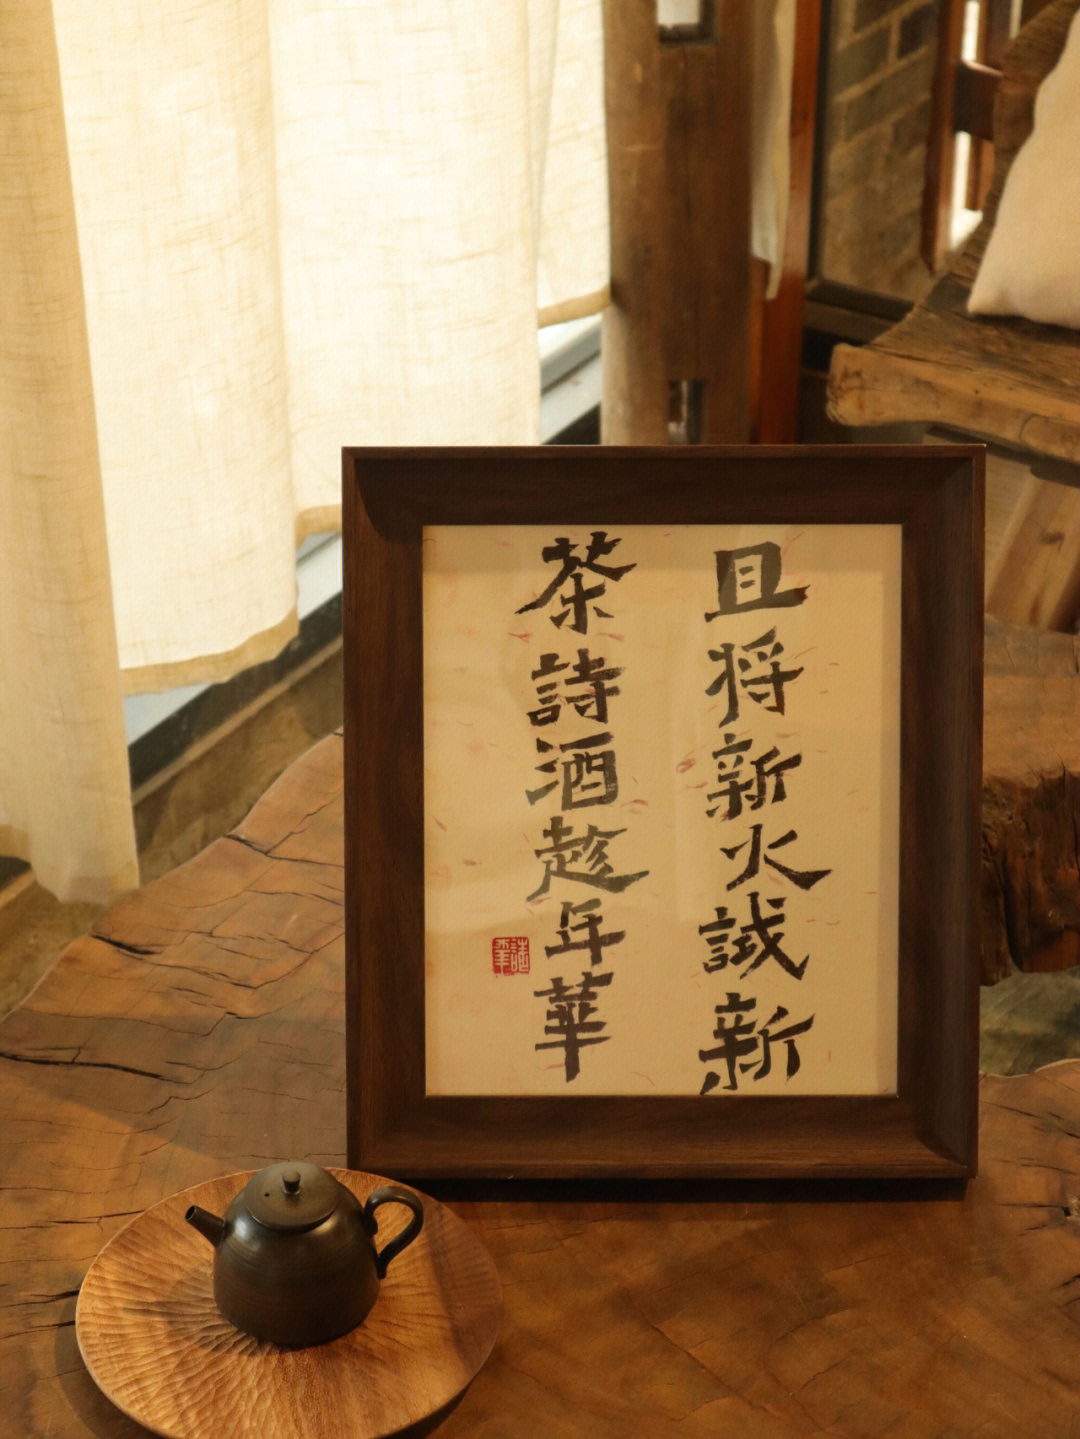 且将新火試新
茶詩酒趁年華